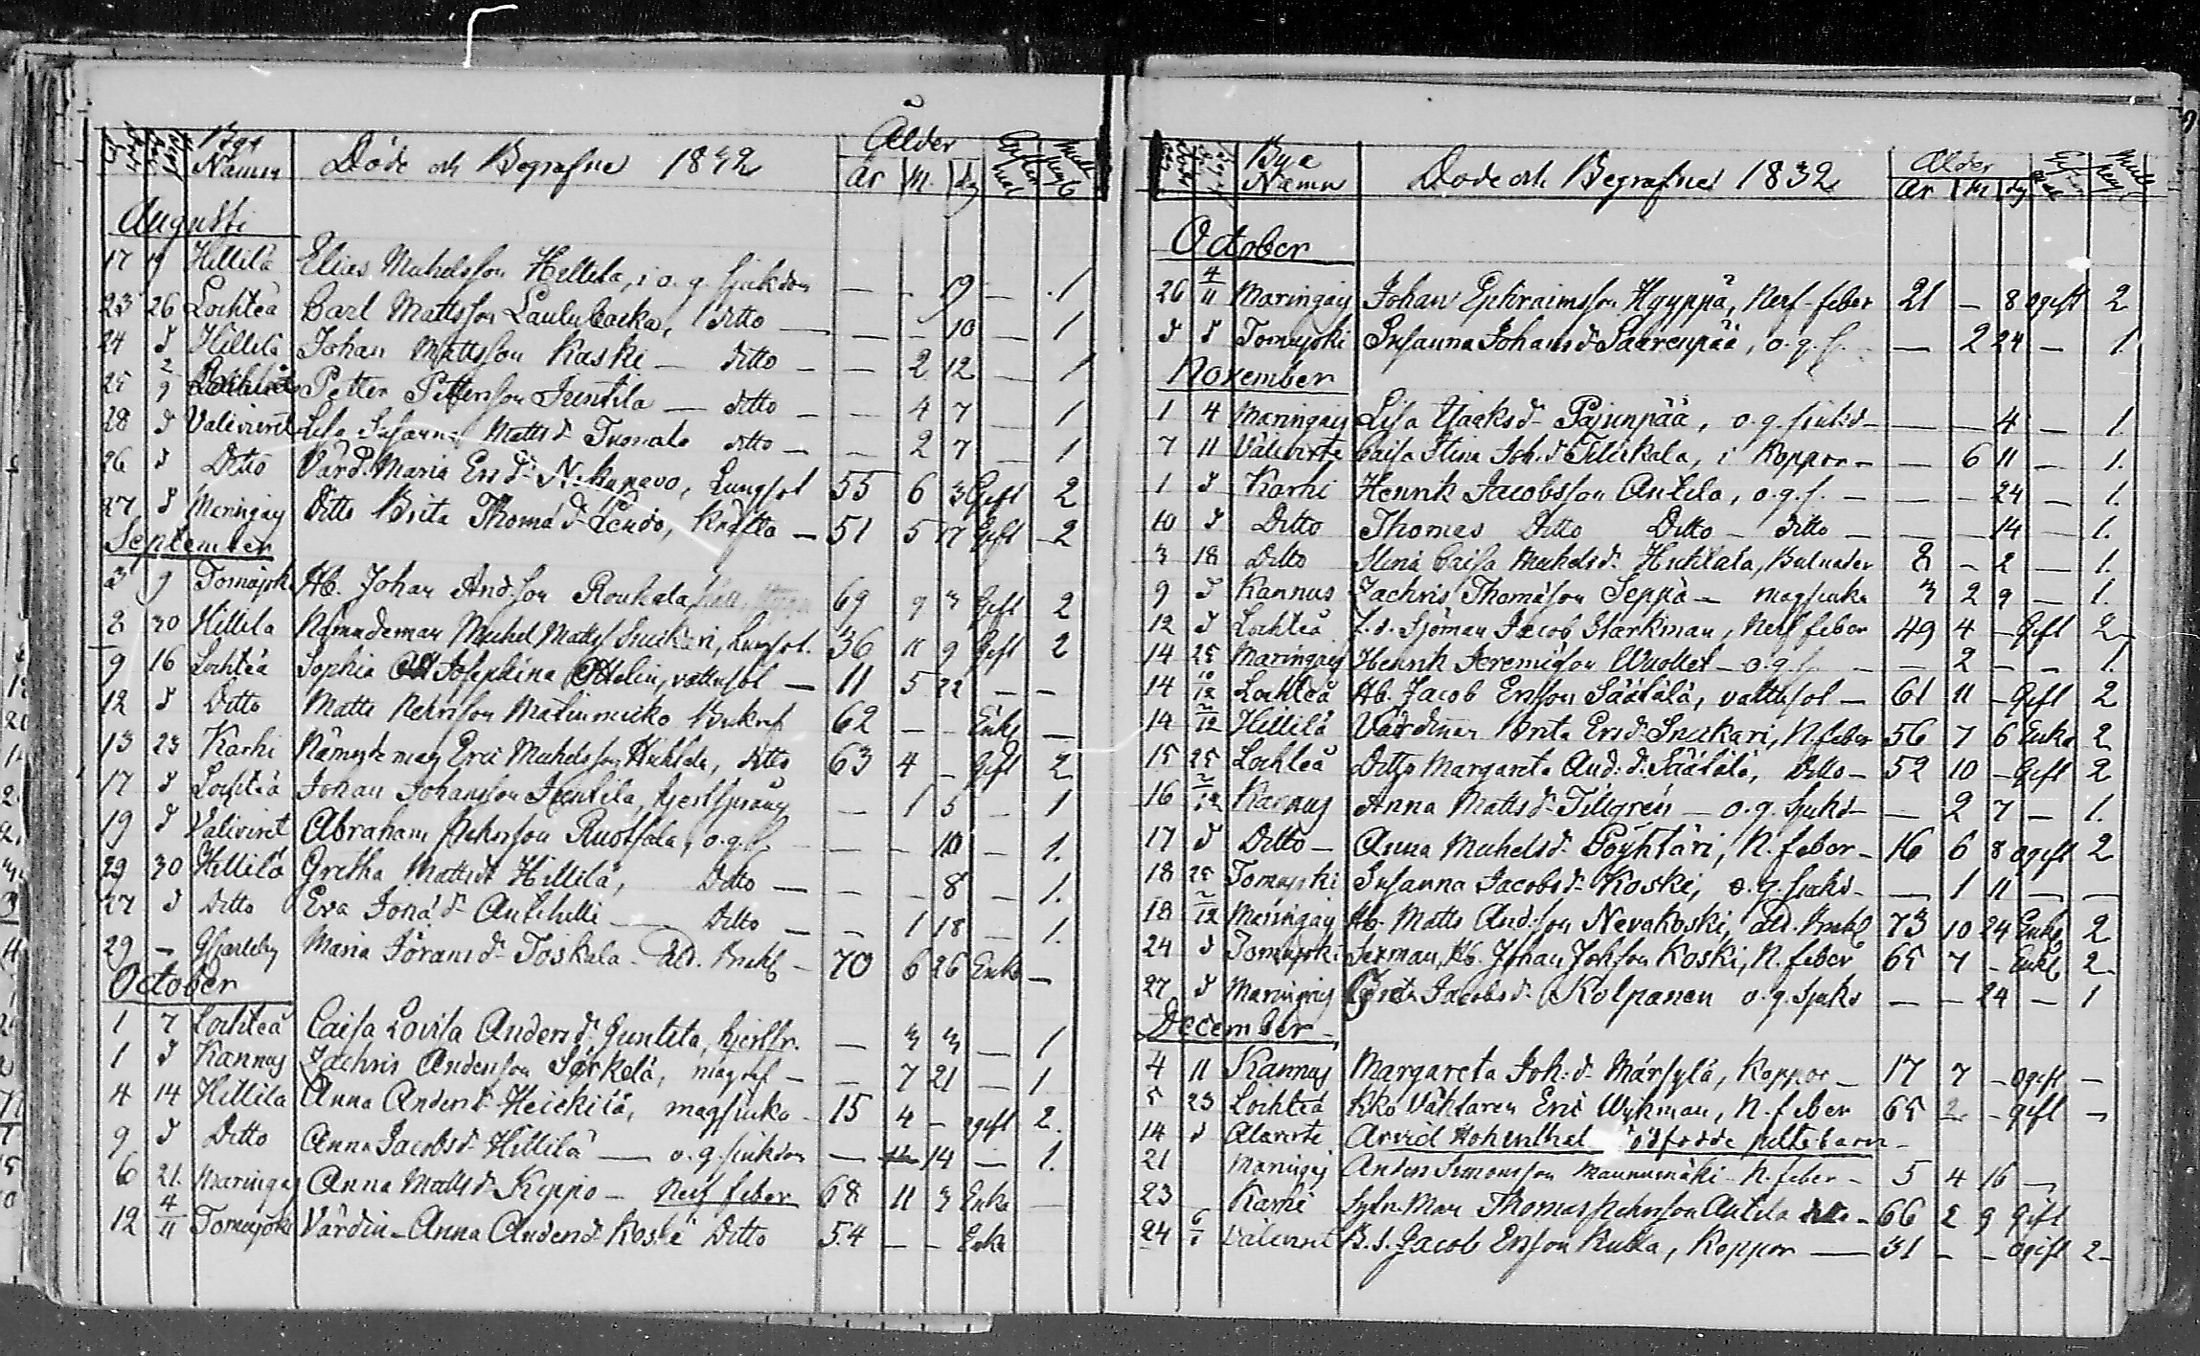 Bya Namn Döde och Begrafne 1832 Ålder
År M. Dg
Augusti
17 19 Hillilä Elias Michelsson Hillilä, i o. g. sjukdom — - 19 — 1
23 26 Lochteå Carl Mattsson Laulubacka, ditto — — - 10 — 1
24 d Hillilä Johan Mattsson Kaski — ditto — — 2 12 — 1
25 2/9 Petter Pettersson Juntila — ditto — — 4 7 — 1
28 d Välivirret Lisa Susanna Matts d. Tuomala ditto — — 2 7 — 1
26 d Ditto Värd. Maria Ers d. Nikupavo, Lungsot 55 6 3 Gift 2
27 d Maringais Ditto Brita Thomæ d. Lendo, Kräfta — 51 5 17 Gift 2
September
3 9 Tomujoki Hb. Johan And.son Roukala 69 9 3 Gift 2
2 30 Hillilä Nämndeman Michel Matts. Snickari, Lungsot. 36 11 9 Gift 2
9 16 Lochteå Sophia Josephina Ottelin, vattusot — 11 5 22 — —
12 d Ditto Matts Pehrsson Matinmicko 62 — — Enkl. —
13 23 Karhi Nämndeman Eric Michelsson Huhtala, ditto 63 4 — Gift 2
17 d Lochteå Johan Johansson Juntila, hjertsprång — 1 5 — 1
19 d Välivirret Abraham Pehrsson Ruotsala, o.g.s. — — 10 — 1.
29 30 Hillilä Gretha Matts dr Hillilä, Ditto — — - 8 — 1.
27 d Ditto Eva Jonæ d. Anttihilli — Ditto — — 1 18 — 1.
29 — Gjarleby Maria Jörans d. Toskala — Åld. Bräckl. — 70 6 26 Enka —
October
1 7 Lochteå Caisa Lovisa Anders d. Juntila, hjertspr. — 3 3 — 1
1 d Kannus Zachris Andersson Särkelä, magsj. — — 7 21 — 1
4 14 Hillilä Anna Anders d. Heickilä, magsjuka — 15 4 — ogift 2.
9 d Ditto Anna Jacobs d. Hillilä — o. g. sjukdom — 14 — 1.
6 21. Maringais Anna Matts d. Keppo — Nerf feber 68 11 3 Enka —
12 4/11 Tomujoki Värdin. Anna Anders d. Koski Ditto 54 — — Enka
Bya Namn Döde och Begrafne 1832 Ålder
År M dg
October
26 4/11 Maringais Johan Ephraimsson Hyyppä, Nerf-feber 21 — 8 ogift 2
d d Tomujoki Susanna Johans d. Saarenpää, o. g. s. — 2 24 — 1.
November
1 4 Maringais Lisa Isaks d. Pajunpää, o. g. sjukd — — — 4 — 1.
7 11 Välivirre Caisa Stina Joh. d. Tilukala, i Koppor — — 6 11 — 1.
1 d Karhi Henrik Jacobsson Antila, o. g. s. — — — 24 — 1.
10 d Ditto Thomas Ditto Ditto — ditto — — — 14 — 1.
3 18 Ditto Stina Caisa Michels d. Huhtala, 8 — 2 — 1.
9 d Kannus Zachris Thomæson Seppä — magsjuka 3 2 9 — 1.
12 d Lochteå f. d. Sjöman Jacob Starkman, Nerf feber 49 4 — Gift 2
14 25 Maringais Henrik Jeremiæson Wuollet — o. g. s. — — 2 — — 1.
14 10/12 Lochteå Hb. Jacob Ersson Säätälä, vattusot — 61 11 — Gift 2
14 2/12 Hillilä Värdinnan Brita Ers d. Snickari, N. feber 56 7 6 Enka 2
15 25 Lochteå Ditto Margareta And: d. Säätälä, Ditto — 52 10 — Gift 2
16 2/12 Kannus Anna Matts d. Tillgrén — o. g. sjukd — — 2 7 — 1.
17 d Ditto — Anna Michels d. Pöyhtäri, N. feber — 16 6 8 ogift 2
18 25 Tomujoki Susanna Jacobs d. Koski, o. g. sjukd — — 1 11 — —
18 2/12 Maringais Hb. Matts And.son Nevakoski, åld. Bräckl. 73 10 24 Enkl 2
24 d Tomujoki Sexman, Hb. Johan Johsson Koski, N. feber 65 7 — Enkl 2
27 d Maringais Greta Jacobs d. Kolpanen o. g. sjukd — — 24 — 1
December
4 11 Kannus Margareta Joh: d. Märsylä, Koppor — 17 7 — ogift —
5 23 Lochteå Eric Wykman, N. feber 65 2 — gift —
14 d Alavirre Arvid Hohenthal dödfödde piltebarn —
21 Maringais Anders Simonsson Maununmäki — N. feber — 5 4 16 —
23 Karhi Thomas Pehrsson Antila ditto — 66 2 9 gift
24 6/1 Välivirret B. S. Jacob Ersson Kukla, Koppor — 31 — — ogift 2